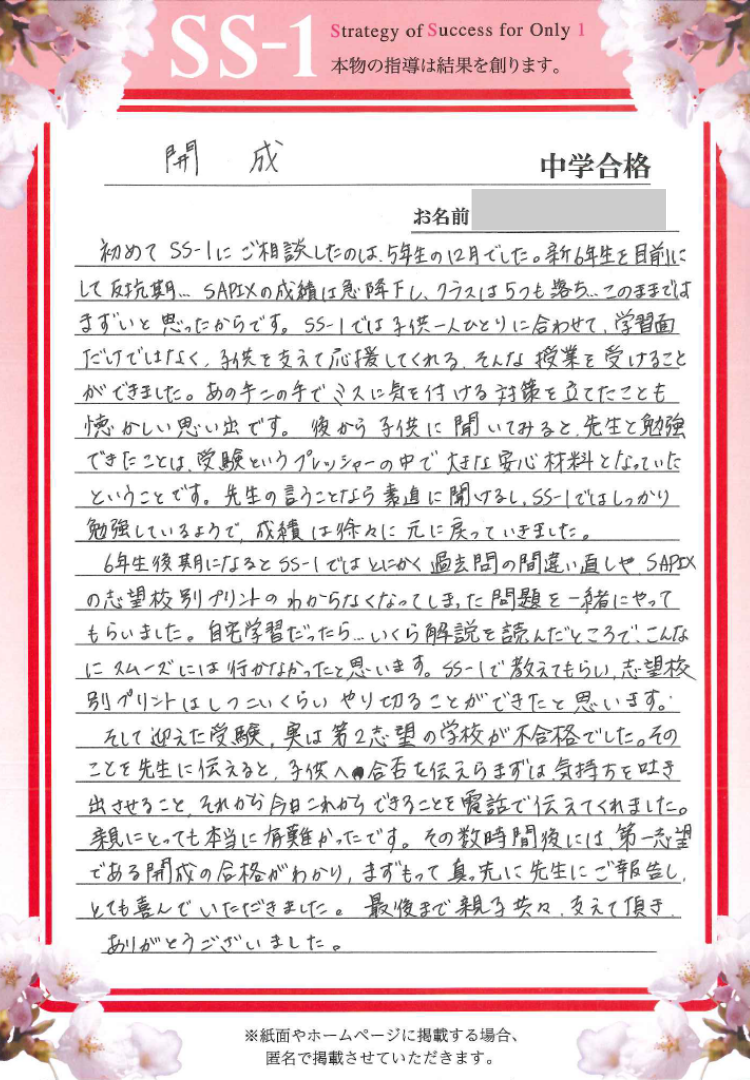 SS-1 Strategy of Success for Only 1
本物の指導は結果を創ります。
開成 中学合格
お名前
初めてSS-1にご相談したのは、5年生の12月でした。新6年生を目前に
して反抗期… SAPIXの成績は急降下し、クラスは5つも落ち…このままでは
まずいと思ったからです。SS-1では子供一人ひとりに合わせて、学習面
だけではなく、子供を支えて応援してくれる、そんな授業を受けること
ができました。あの手この手でミスに気を付ける対策を立てたことも
懐かしい思い出です。後から子供に聞いてみると、先生と勉強
できたことは、受験というプレッシャーの中で大きな安心材料となっていた
ということです。先生の言うことなら素直に聞けるし、SS-1ではしっかり
勉強しているようで、成績は徐々に元に戻っていきました。
6年生後期になるとSS-1ではとにかく過去問の間違い直しや、SAPIX
の志望校別プリントのわからなくなってしまった問題を一緒にやって
もらいました。自宅学習だったら…いくら解説を読んだところで、こんな
にスムーズには行かなかったと思います。SS-1で教えてもらい、志望校
別プリントはしつこいくらいやり切ることができたと思います。
そして迎えた受験、実は第2志望の学校が不合格でした。その
ことを先生に伝えると、子供へ合否を伝えらまずは気持ちを吐き
出させること、それから今日これからできることを電話で伝えてくれました。
親にとっても本当に有難かったです。その数時間後には、第一志望
である開成の合格がわかり、まずもって真っ先に先生にご報告し、
とても喜んでいただきました。最後まで親子共々、支えて頂き、
ありがとうございました。
※紙面やホームページに掲載する場合、
匿名で掲載させていただきます。